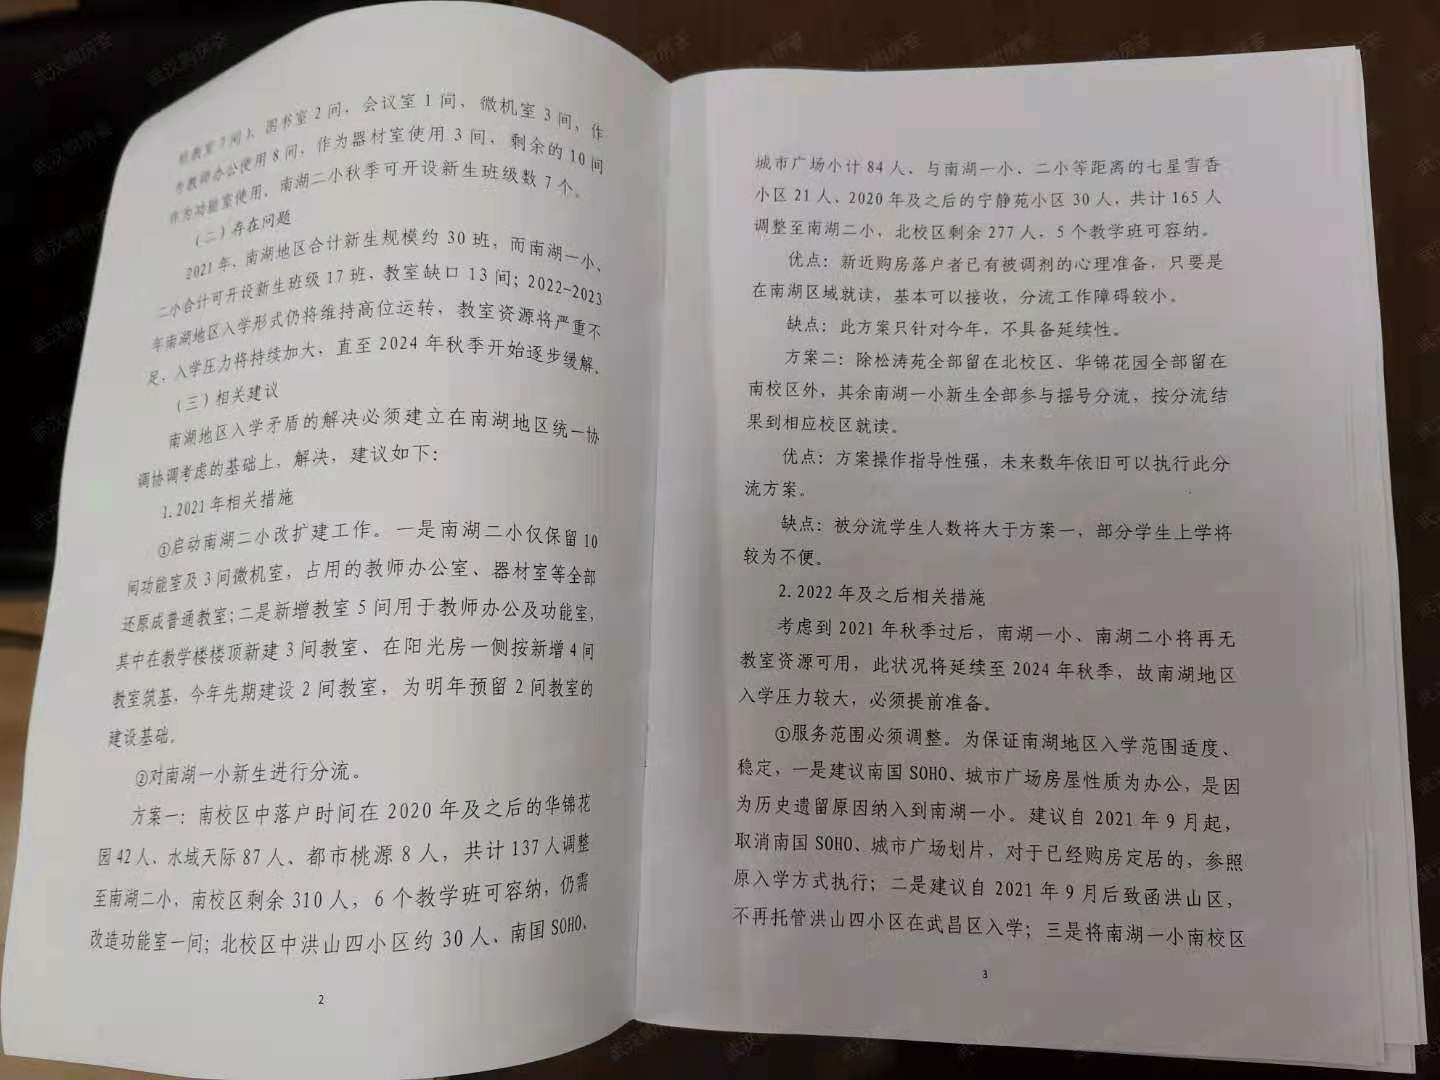 教室7间)、图书室2间、会议室1间、微机室3间,作
为教师办公使用8间、作为器材室使用3间,剩余的10间
作为功能室使用,南湖二小秋季可开设新生班级数7个。
(二)存在问题
2021年,南湖地区合计新生规模约30班,而南湖一小、
二小合计可开设新生班级17班,教室缺口13间;2022-2023
年南湖地区入学形式仍将维持高位运转,教室资源将严重不
足,入学压力将持续加大,直至2024年秋季开始逐步缓解。
(三)相关建议
南湖地区入学矛盾的解决必须建立在南湖地区统一协
调协调考虑的基础上,解决,建议如下:
1.2021年相关措施
①启动南湖二小改扩建工作。一是南湖二小仅保留10
间功能室及3间微机室,占用的教师办公室、器材室等全部
还原成普通教室;二是新增教室5间用于教师办公及功能室,
其中在教学楼楼顶新建3间教室、在阳光房一侧按新增4间
教室筑基,今年先期建设2间教室,为明年预留2间教室的
建设基础。
②对南湖一小新生进行分流。
方案一:南校区中落户时间在2020年及之后的华锦花
园42人、水域天际87人、都市桃源8人,共计137人调整
至南湖二小,南校区剩余310人,6个教学班可容纳,仍需
改造功能室一间;北校区中洪山四小区约30人、南国SOHO、
2
城市广场小计84人、与南湖一小、二小等距离的七星雪香
小区21人、2020年及之后的宁静苑小区30人,共计165人
调整至南湖二小,北校区剩余277人,5个教学班可容纳。
优点:新近购房落户者已有被调剂的心理准备,只要是
在南湖区域就读,基本可以接收,分流工作障碍较小。
缺点:此方案只针对今年,不具备延续性。
方案二:除松涛苑全部留在北校区、华锦花园全部留在
南校区外,其余南湖一小新生全部参与摇号分流,按分流结
果到相应校区就读。
优点:方案操作指导性强,未来数年依旧可以执行此分
流方案。
缺点:被分流学生人数将大于方案一,部分学生上学将
较为不便。
2.2022年及之后相关措施
考虑到2021年秋季过后,南湖一小、南湖二小将再无
教室资源可用,此状况将延续至2024年秋季,故南湖地区
入学压力较大,必须提前准备。
①服务范围必须调整。为保证南湖地区入学范围适度、
稳定,一是建议南国SOHO、城市广场房屋性质为办公,是因
为历史遗留原因纳入到南湖一小。建议自2021年9月起,
取消南国SOHO、城市广场划片,对于已经购房定居的,参照
原入学方式执行;二是建议自2021年9月后致函洪山区,
不再托管洪山四小区在武昌区入学;三是将南湖一小南校区
3